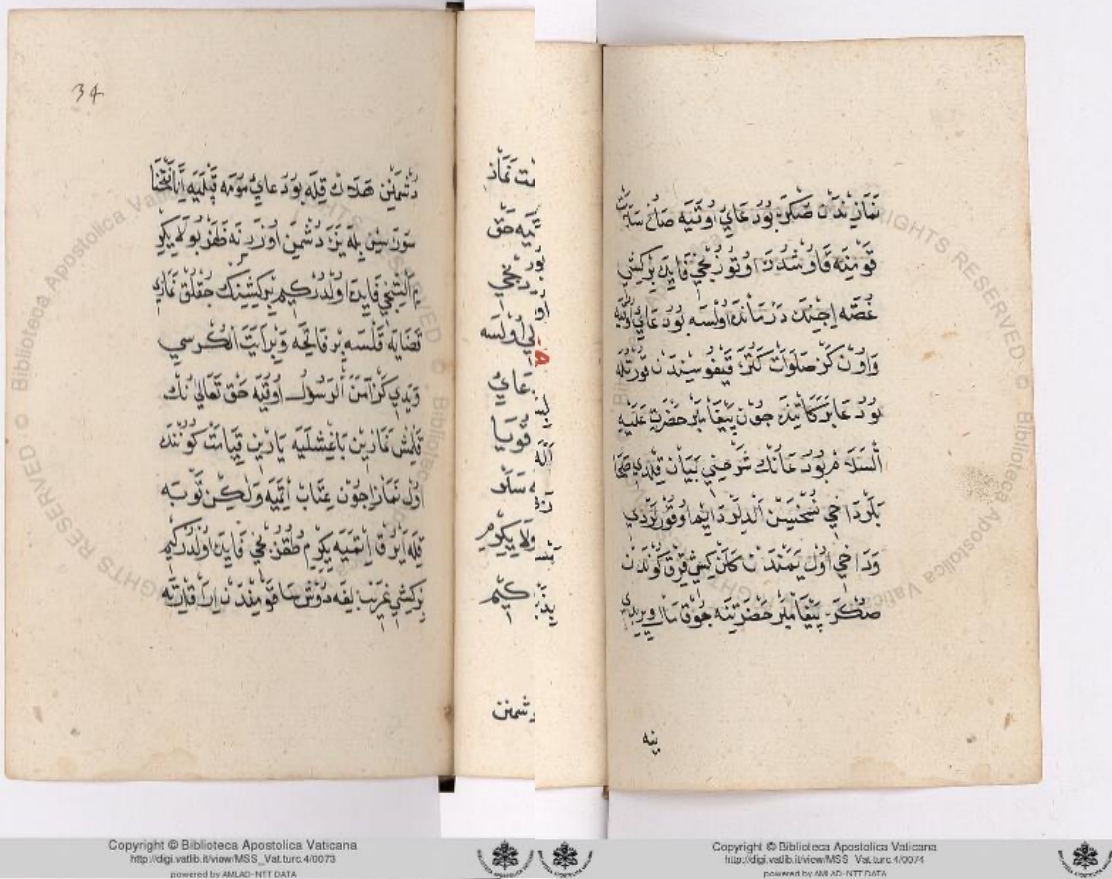 34
دشمنین هلاك قيله بو دعايي مومه قبليه انا فتحنا
سورسين بله يز دشمن اوزرنه ظفر بولا يكرمي
التنجي فايده اولدر كيم بركشينك چقلق نمازي
قضايه قلسه بر فاتحه و بر آيت الكرسي
و يدي كز آمن الرسول اوقيه حق تعالى نك
قلمش نمازين باغشليه يارين قيامت كوننده
اول نماز ايچون عتاب اتميه ولكن توبه
قيله ايرق اتميه يكرم طقزنجي فايده اولدركيم
بركشي غريب لغه دوش سا قومندن ايراق
مت نماز
حق
نجي
اولسه
عايي
ولا يكرمي
كيم
دشمنن
نمازندن صكره بو دعايي اوقيه صاغ سلامت
قومنه قاوشدر اوتوزنجي فايده بركشي
غصه ايچنده درمانده اولسه بو دعايي اوقيه
و اون كز صلوات كتره قيغوسندن قورتله
بو دعا بركاتنده چون پيغامبر حضرت عليه
السلام بو دعانك شرحني بيان قلدي صحا
بلر داخي شخسن الدلر دايما اوقورلردي
و داخي اول يمندن كلن كيشي قرق كوندن
صكره پيغامبر حضرتنه چوق مال ويردي
ينه
Copyright © Biblioteca Apostolica Vaticana
http://digi.vatlib.it/view/MSS_Vat.turc.4/0073
powered by AMLAD-NTT DATA
Copyright © Biblioteca Apostolica Vaticana
http://digi.vatlib.it/view/MSS_Vat.turc.4/0074
powered by AMLAD-NTT DATA